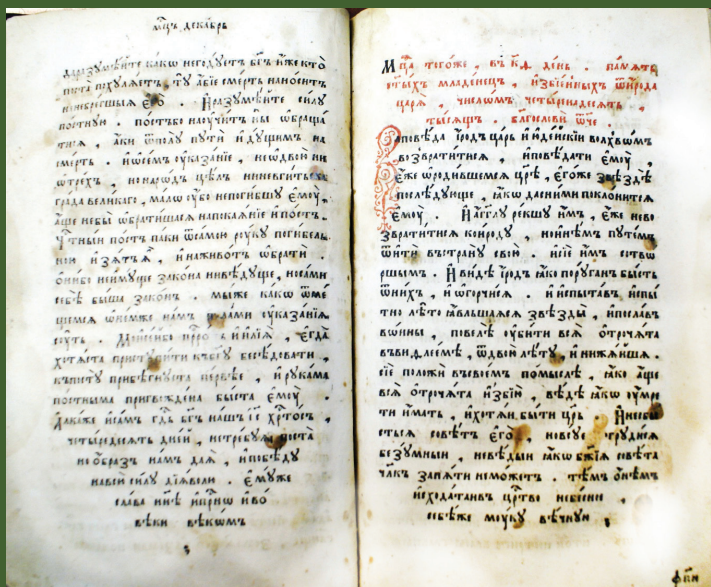 мц҃ъ декабрь
даразꙋмѣйте какѡ негодꙋетъ бг҃ъ и҆же кто
поста похꙋляетъ, тꙋ а҆бїе смерть наноситъ
ненебрегшыя є҆го̀ . И҆разꙋмѣйте силꙋ
постнꙋю . постъбо наꙋчитъ ны̀ ѡ҆браща
тися , а҆ки ѿполꙋ пꙋти и҆дꙋщимъ на
смерть . и҆ѡсемъ ᲂу҆казанїе , неѡ҆двою ни
ѡ҆трехъ , нонарѡдъ цѣлъ ниневгитъска
града великаго , малѡ ᲂу҆бо непогибшꙋ є҆мꙋ̀ ,
а҆ще небы̀ ѡ҆братишася напокаянїе и҆постъ .
чтⷭ҇ныи постъ паки ѿсамою рꙋкꙋ погибель
ною и҆зятъ̀я , и҆наживотъ ѡ҆брати .
ѻ҆нибо неи҆мꙋще закона нивѣдꙋще , носами
себѣ̀ быша законъ . мыже какѡ ѿме
щемся
нам ᲂу҆казанїя
сꙋть . є҆гда̀
хотѧста бесѣдовати ,
въпостꙋ прибѣгнꙋста первѣе , и҆рꙋкама
постныма пригвождена быста є҆мꙋ̀ .
дакаже и҆самъ гд҇ь бг҃ъ нашъ і҆с҃ хрⷭ҇тосъ ,
четыредесять дней , нетребꙋя поста
но ѻ҆бразъ намъ дая̀ , и҆побѣдꙋ
навою силꙋ дїяволи . є҆мꙋже
слава нн҃ѣ и҆прⷭ҇нѡ и҆во
вѣки вѣкѡмъ
Мцⷭ҇а тогоже , въ к҃д день . память
ст҃ыхъ младенецъ , и҆збїенныхъ ѿи҆рода
царя , числѡмъ четыренадесять ,
тысящъ . благословѝ ѿче .
Заповѣда і҆родъ царь и҆ю҆дейскїи волхвѡмъ
возвратитися , и҆повѣдати є҆мꙋ̀ ,
є҆же ѡ҆родившемся црѣ̀ , є҆гоже ѕвѣздѣ̀
послѣдꙋюще , я҆кѡ даснимѝ поклонится
є҆мꙋ̀ . И҆а҆гг҃лꙋ рекшꙋ и҆мъ , є҆же нево
звратитися кои҆родꙋ , нои҆нѣмъ пꙋтемъ
ѿити въстранꙋ свою̀ . и҆сїе и҆мъ сотвѡ
ршымъ . И҆видѣ̀ і҆родъ я҆кѡ порꙋганъ бысть
ѿнихъ , и҆ѡгорчися . и҆и҆спытавъ и҆спы
тно лѣто ꙗ҆вльшаяся ѕвѣзды̀ , и҆пославъ
воины , повелѣ̀ ᲂу҆бити вся̀ ѻ҆трочята
въвиѳлеемѣ , ѿдвою̀ лѣтꙋ , и҆нижайша .
сїе положѝ въсвоемъ помыслѣ , я҆кѡ а҆ще
вся̀ ѻ҆трочята и҆збїю̀ , вѣдѣ̀ я҆кѡ ᲂу҆мре
ти и҆мать , и҆хотяи быти цр҃ь . И҆несбы
еться совѣтъ є҆го̀ , новсꙋе трꙋдися
безꙋмныи , невѣдыи я҆кѡ бж҃їя совѣта
чл҃къ запяти неможетъ . тѣмъ ѻ҆нѣмъ
и҆сходатаивъ црⷭ҇тво небесное ,
себѣже мꙋкꙋ вѣчнꙋю